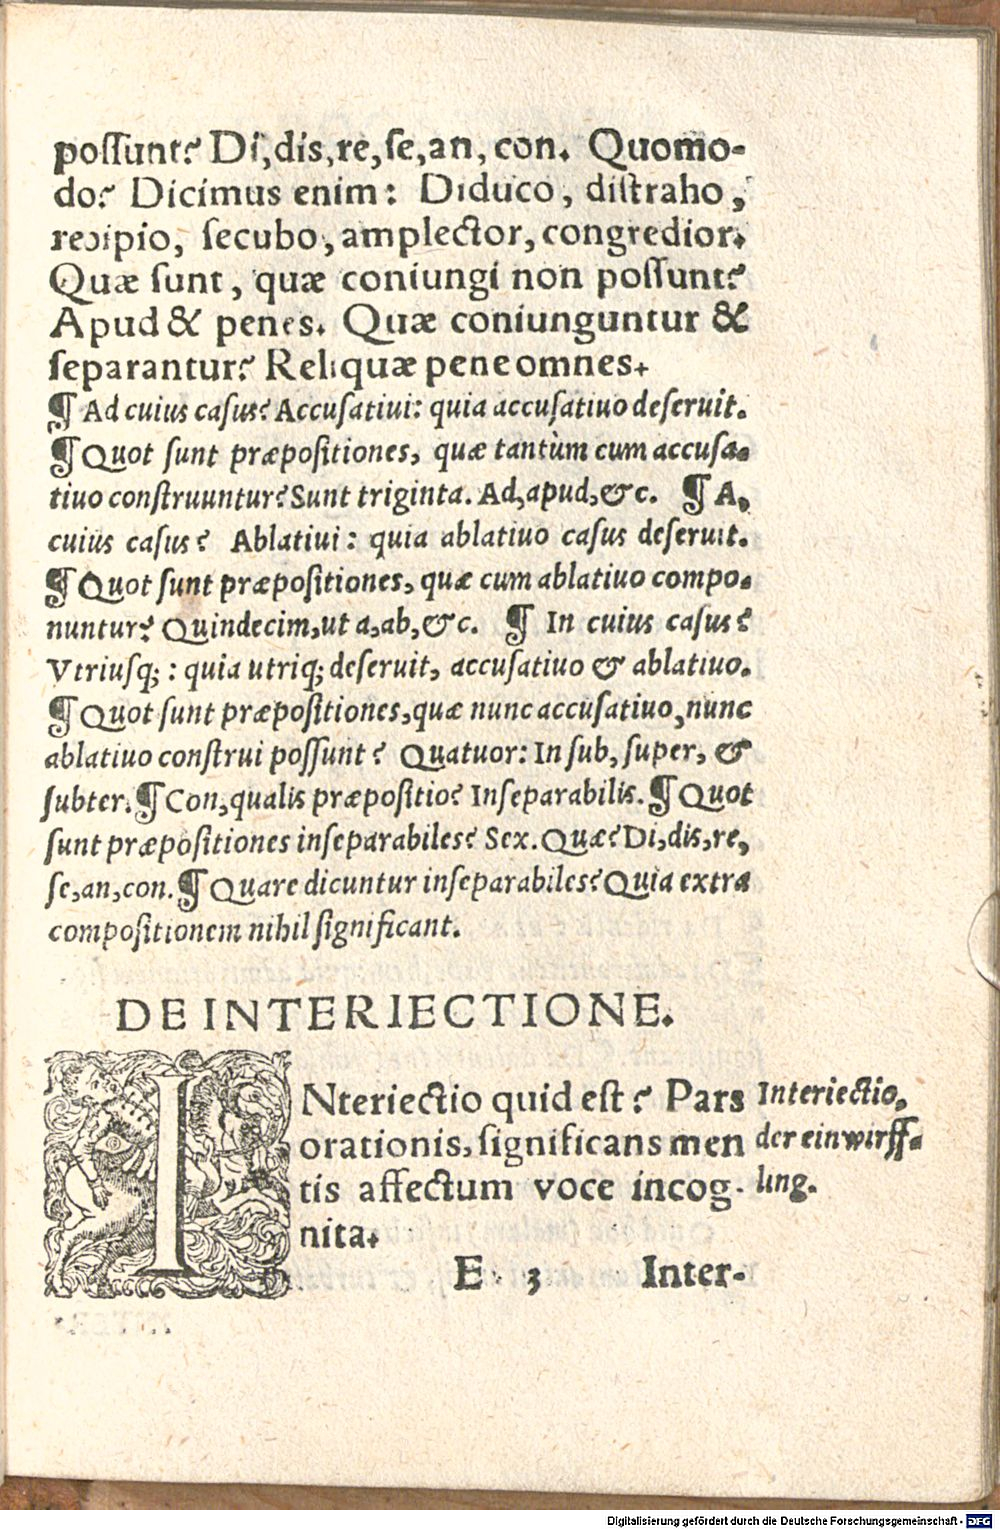 poſſunt? Di, dis, re, ſe, an, con. Quomo-
do? Dicimus enim: Diduco, diſtraho,
recipio, ſecubo, amplector, congredior.
Quæ ſunt, quæ coniungi non poſſunt?
Apud & penes. Quæ coniunguntur &
ſeparantur? Reliquæ pene omnes.
¶ Ad cuius caſus? Accuſatiui: quia accuſatiuo deſeruit.
¶ Quot ſunt præpoſitiones, quæ tantùm cum accuſa-
tiuo conſtruuntur? Sunt triginta. Ad, apud, &c. ¶ A,
cuius caſus? Ablatiui: quia ablatiuo caſus deſeruit.
¶ Quot ſunt præpoſitiones, quæ cum ablatiuo compo-
nuntur? Quindecim, ut a, ab, &c. ¶ In cuius caſus?
Vtriuſq;: quia utriq; deſeruit, accuſatiuo & ablatiuo.
¶ Quot ſunt præpoſitiones, quæ nunc accuſatiuo, nunc
ablatiuo conſtrui poſſunt? Quatuor: In ſub, ſuper, &
ſubter. ¶ Con, qualis præpoſitio? Inſeparabilis. ¶ Quot
ſunt præpoſitiones inſeparabiles? Sex. Quæ? Di, dis, re,
ſe, an, con. ¶ Quare dicuntur inſeparabiles? Quia extra
compoſitionem nihil ſignificant.
DE INTERIECTIONE.
INteriectio quid est? Pars
orationis, ſignificans men
tis affectum voce incog-
nita.
Interiectio,
der einwirff-
ling.
E 3 Inter-
Digitalisierung gefördert durch die Deutsche Forschungsgemeinschaft - DFG